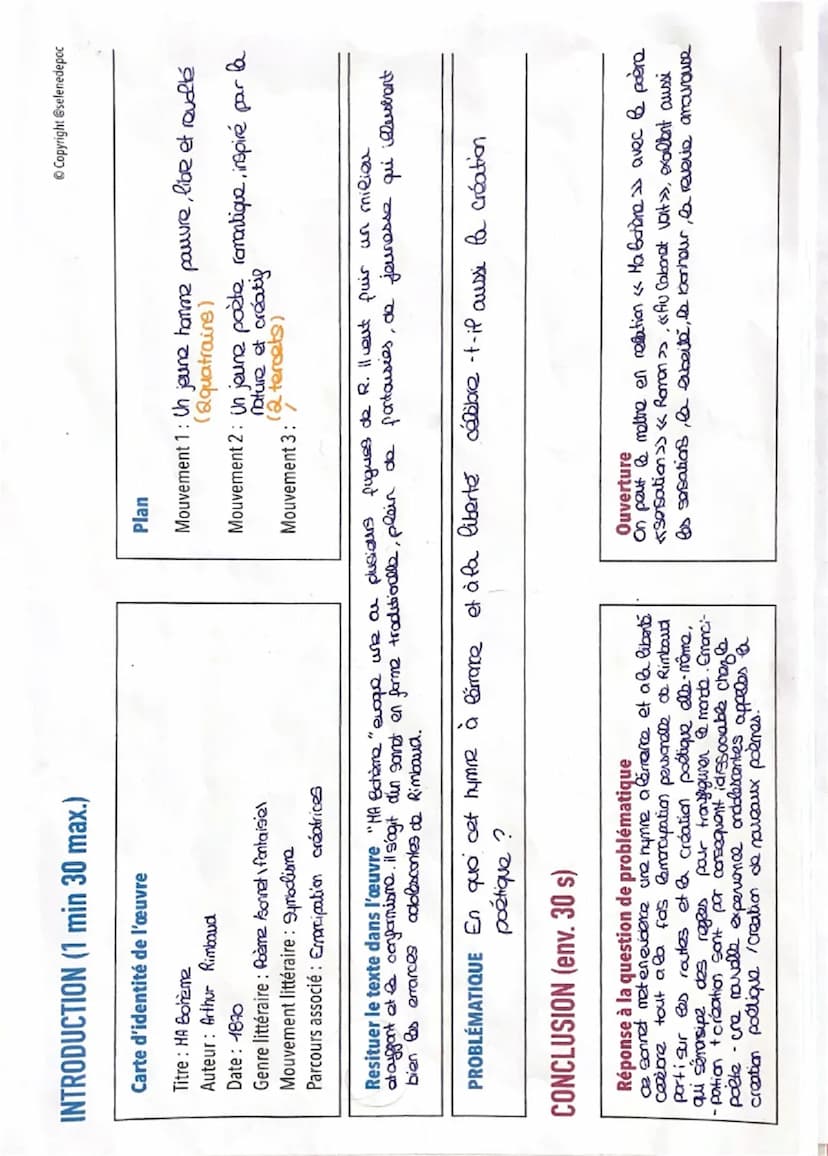 © Copyright @selenedepoc
INTRODUCTION (1 min 30 max.)
Carte d'identité de l'œuvre
Titre : MA Bohème
Auteur : Arthur Rimbaud
Date : 1870
Genre littéraire : Poème (sonnet \ fantaisie)
Mouvement littéraire : Symbolisme
Parcours associé : Emancipation créatrices
Plan
Mouvement 1 : Un jeune homme pauvre, libre et révolté
(2 quatrains)
Mouvement 2 : Un jeune poète romantique, inspiré par la
nature et créatif
(2 tercets)
Mouvement 3 : /
Resituer le texte dans l'œuvre "MA Bohème" évoque une ou plusieurs fugues de R. Il veut fuir un milieu
étouffant et le conformisme. il s'agit d'un sonnet en forme traditionnelle, plein de fantaisies, de jeunesse qui illustrent
bien les errances adolescentes de Rimbaud.
PROBLÉMATIQUE En quoi cet hymne à l'errance et à la liberté célèbre-t-il aussi la création
poétique ?
CONCLUSION (env. 30 s)
Réponse à la question de problématique
ce sonnet met en évidence une hymne a l'errance et a la liberté
célèbre tout a la fois l'émancipation personnelle de Rimbaud
parti sur les routes et la création poétique elle-même,
qui s'émancipe des règles pour transfigurer le monde. Emanci-
-pation + création sont par conséquent idissociable chez le
poète - une nouvelle expérience adolescentes appelles la
création poétique / création de nouveaux poèmes.
Ouverture
On peut le mettre en relation << Ma bohème >> avec le poème
<< sensation >> << Roman >>, << Au Cabaret Vert >>, exaltent aussi
les sensations, la liberté, le bonheur, la rêverie amoureuse